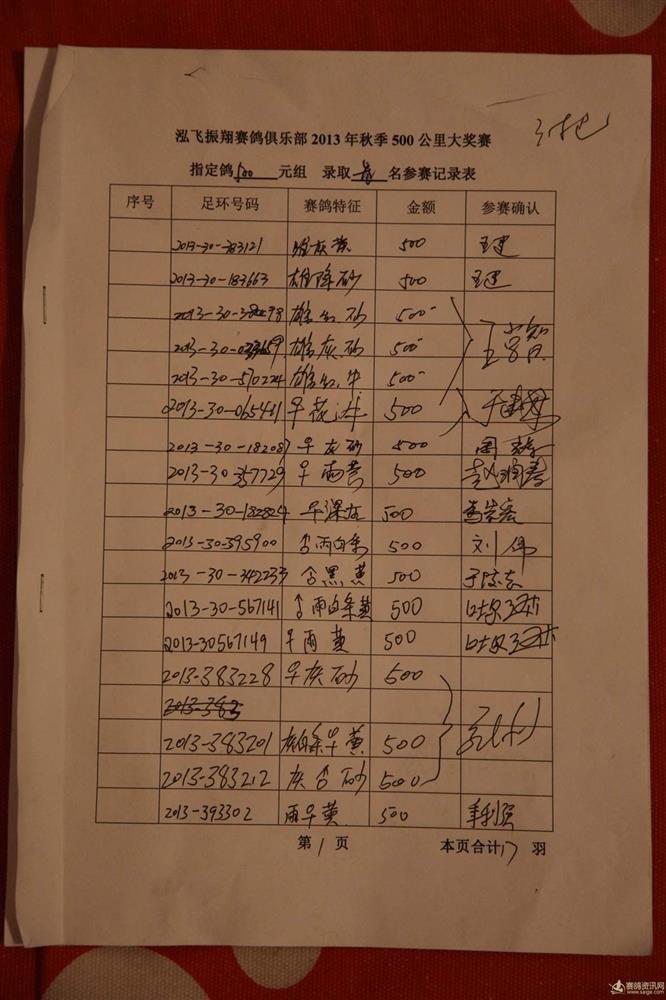 泓飞振翔赛鸽俱乐部 2013 年秋季 500 公里大奖赛
指定鸽 500 元组 录取 名参赛记录表
序号 足环号码 赛鸽特征 金额 参赛确认
2013-30-383121 灰黄 500 王建
2013-30-183663 雄降砂 500 王建
2013-30- 雄 砂 500
2013-30- 雄灰砂 500 王富智
2013-30-510224 雄 500
2013-30-065481 ♀花 500 于建
2013-30-182087 ♀灰砂 500 周
2013-30-357729 ♀雨黄 500 赵润春
2013-30-182824 ♀深灰 500 宏
2013-30-395900 ♂雨白条 500 刘伟
2013-30-342233 ♂黑黄 500 于
2013-30-567141 ♂雨白条黄 500
2013-30567149 ♀雨黄 500
2013-383228 ♀灰砂 500
2013-383
2013-383201 灰白条♀黄 500
2013-383212 灰♂砂 500
2013-393302 雨♀黄 500 李利强
第 1 页 本页合计 17 羽
赛鸽资讯网
www.saige.com